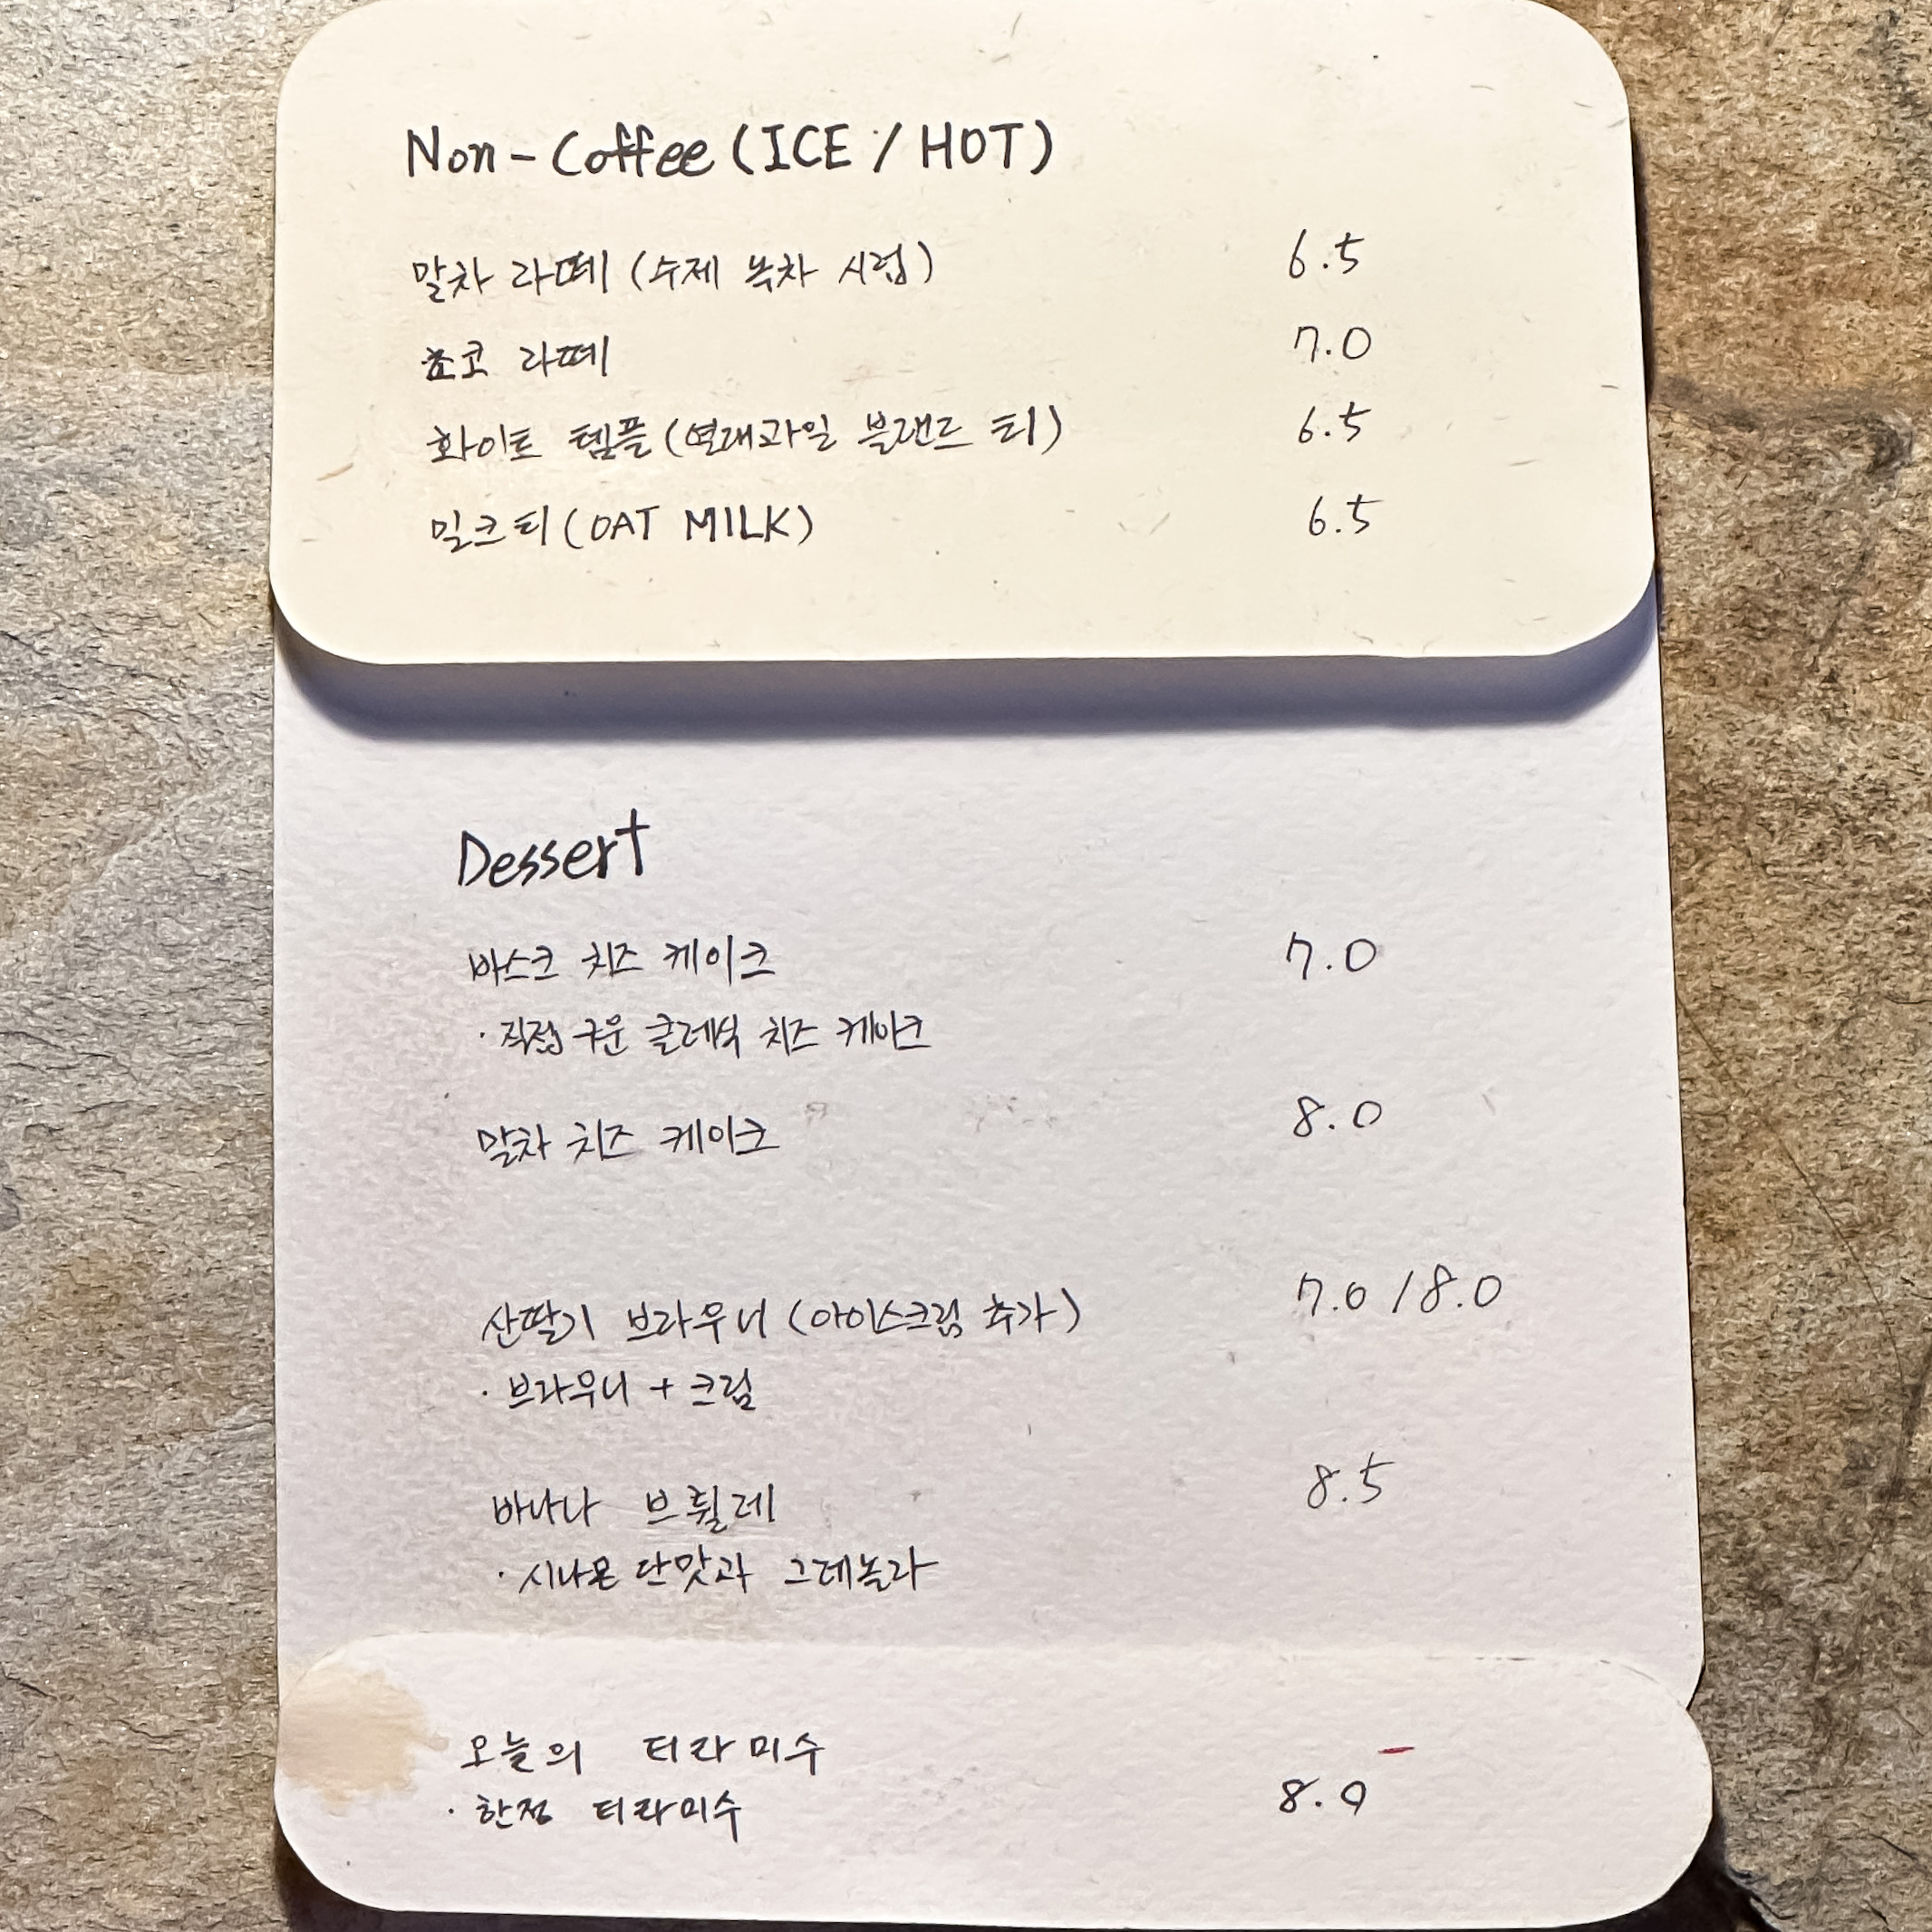 Non-Coffee (ICE / HOT)
말차 라떼 (수제 녹차 시럽) 6.5
쵸코 라떼 7.0
화이트 템플 (열대과일 블랜드 티) 6.5
밀크티 (OAT MILK) 6.5
Dessert
바스크 치즈 케이크 7.0
· 직접 구운 클레식 치즈 케이크
말차 치즈 케이크 8.0
산딸기 브라우니 (아이스크림 추가) 7.0 / 8.0
· 브라우니 + 크림
바나나 브륄레 8.5
· 시나몬 단맛과 그레놀라
오늘의 티라미수
· 한정 티라미수 8.0